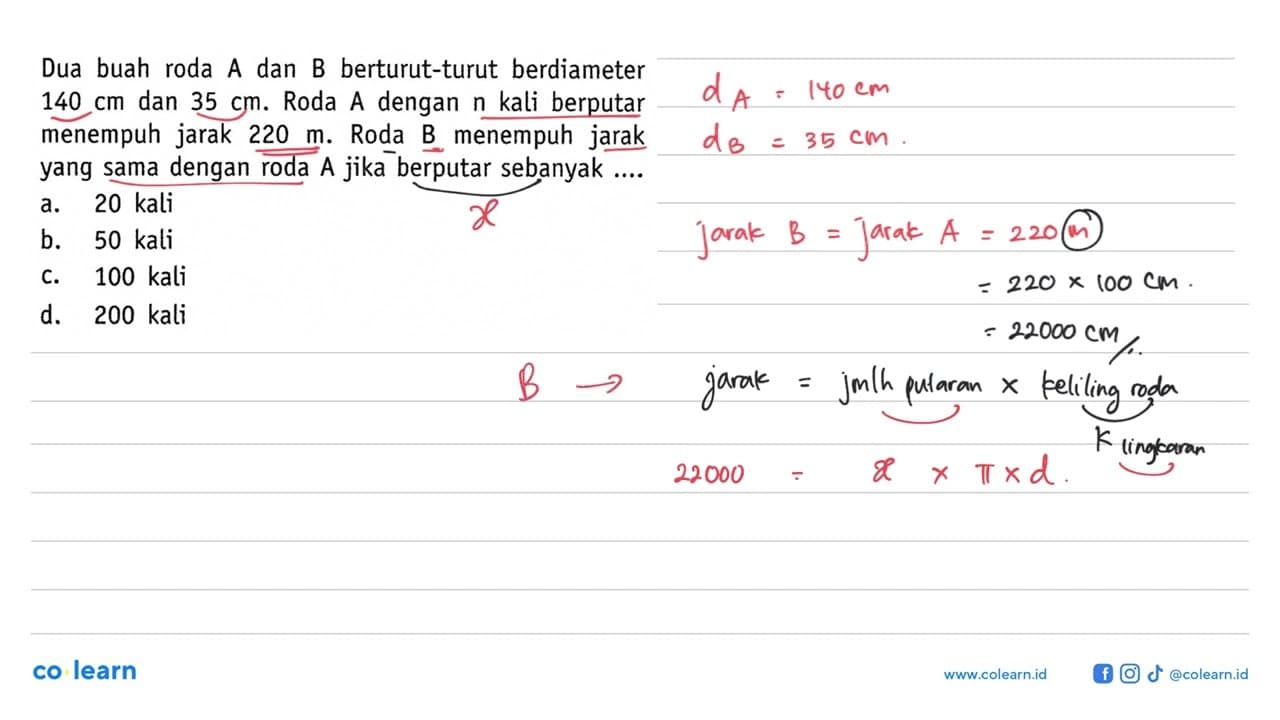 Dua buah roda A dan B berturut-turut berdiameter
140 cm dan 35 cm. Roda A dengan n kali berputar
menempuh jarak 220 m. Roda B menempuh jarak
yang sama dengan roda A jika berputar sebanyak ....
x
a. 20 kali
b. 50 kali
c. 100 kali
d. 200 kali
d A = 140 cm
d B = 35 cm .
jarak B = jarak A = 220 m
= 220 x 100 cm .
= 22000 cm //.
B → jarak = jmlh putaran x keliling roda
K lingkaran
22000 = x x π x d .
co learn
www.colearn.id
@colearn.id